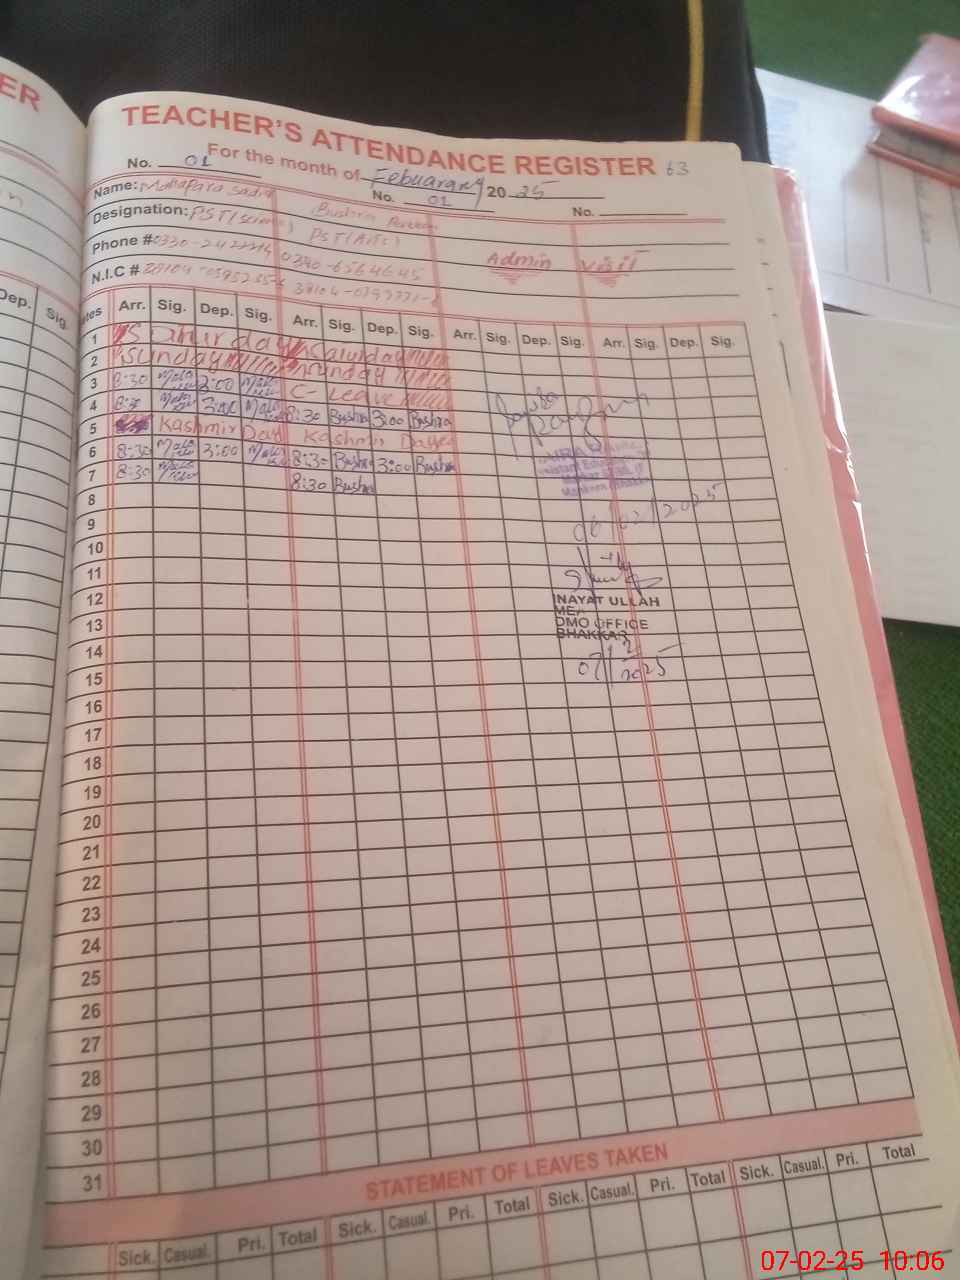 ER
TEACHER'S ATTENDANCE REGISTER 63
For the month of Febuarary 20 25
No. 01 No. 01 No.
Name: Mahapara Sadiq Bushra Parveen
Designation: PST(Science) PST(Arts)
Phone # 0340-6564645 Admin visit
N.I.C #
Dep. Sig.
Dates Arr. Sig. Dep. Sig. Arr. Sig. Dep. Sig. Arr. Sig. Dep. Sig. Arr. Sig. Dep. Sig.
1 Saturday Saturday
2 Sunday Sunday
3 8:30 3:00 C- Leave
4 8:30 3:00 8:30 Bushra 3:00 Bushra
5 Kashmir Day Kashmir Day
6 8:30 3:00 8:30 Bushra 3:00 Bushra
7 8:30 8:30 Bushra
8
06/02/2025
9
10
11
12
INAYAT ULLAH
MEA
13
DMO OFFICE
BHAKKAR
14
07/2/2025
15
16
17
18
19
20
21
22
23
24
25
26
27
28
29
30
31
STATEMENT OF LEAVES TAKEN
Sick. Casual. Pri. Total Sick. Casual. Pri. Total Sick. Casual. Pri. Total Sick. Casual. Pri. Total
07-02-25 10:06